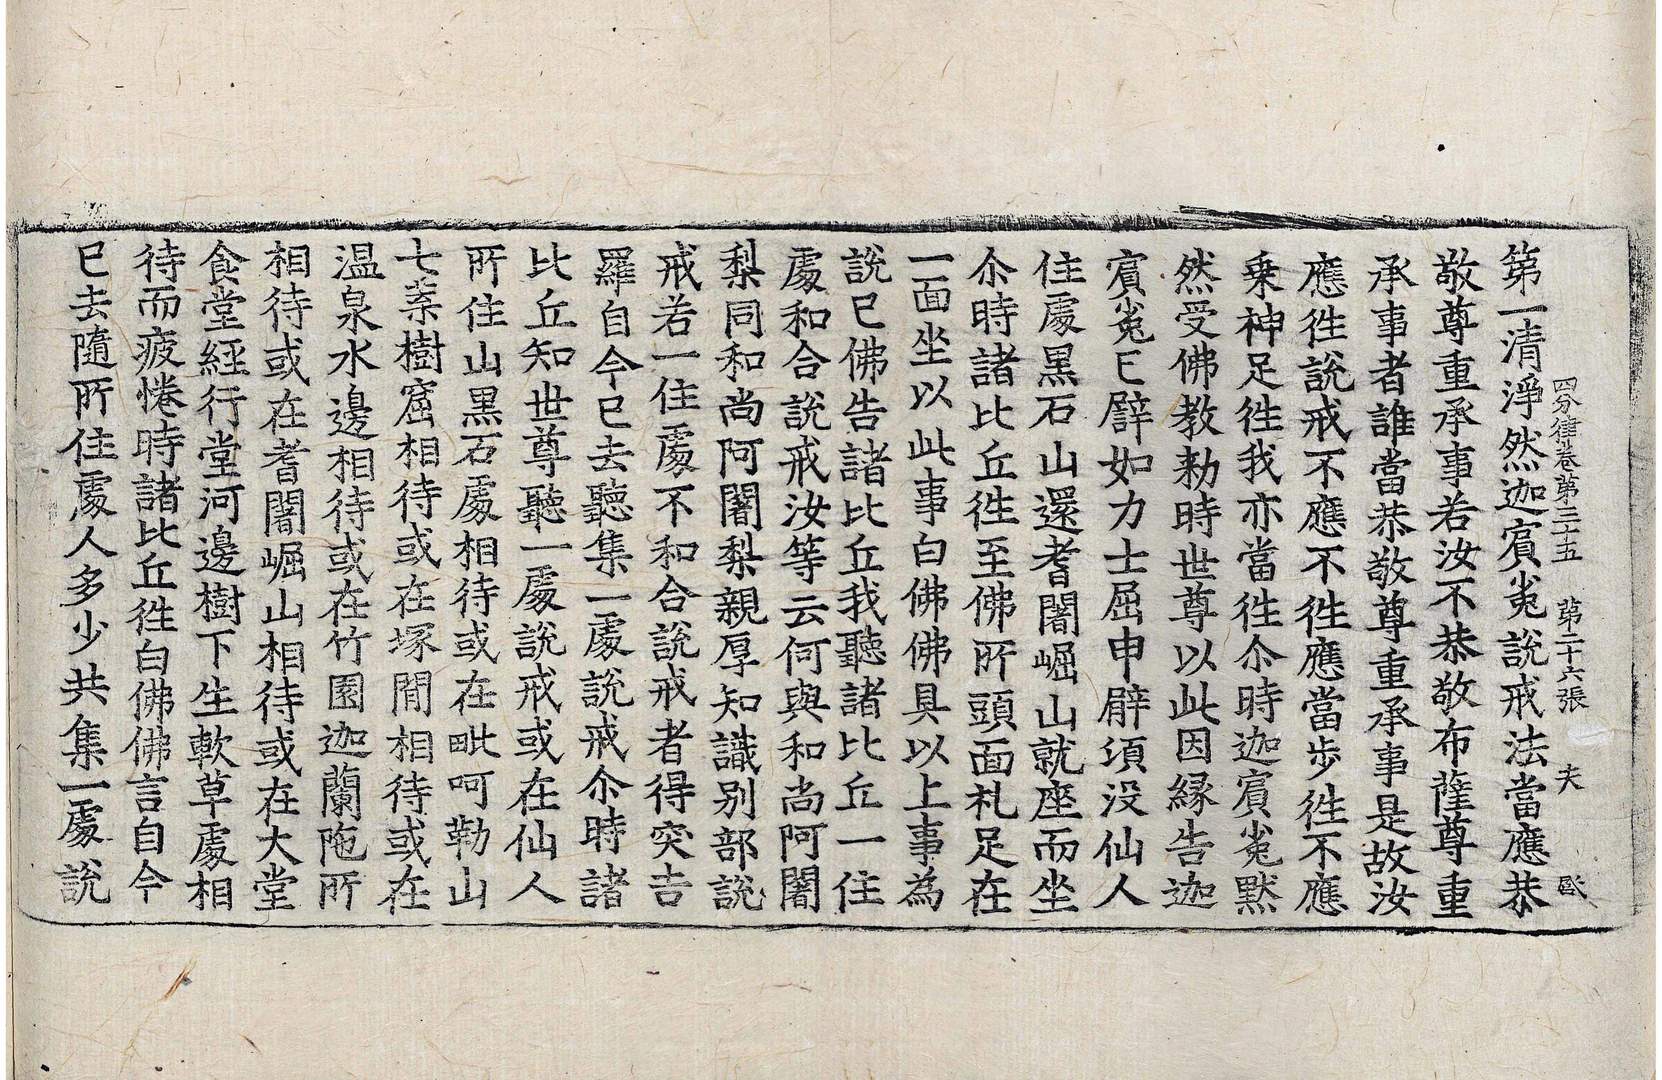 四分律卷第三十五　第二十六張　夫　歐
第一清淨然迦賓㝹說戒法當應恭
敬尊重承事若汝不恭敬布薩尊重
承事者誰當恭敬尊重承事是故汝
應徃說戒不應不徃應當步徃不應
乗神足徃我亦當徃尒時迦賓㝹默
然受佛教勑時世尊以此因縁告迦
賓㝹已辟如力士屈申臂湏没仙人
住處黒石山還耆闍崛山就座而坐
尒時諸比丘徃至佛所頭面札足在
一面坐以此事白佛佛具以上事為
說已佛告諸比丘我聽諸比丘一住
處和合說戒汝等云何與和尚阿闍
梨同和尚阿闍梨親厚知識別部說
戒若一住處不和合說戒者得突吉
羅自今已去聽集一處說戒尒時諸
比丘知世尊聽一處說戒或在仙人
所住山黒石處相待或在毗呵勒山
七葉樹窟相待或在塚間相待或在
温泉水邊相待或在竹園迦蘭陁所
相待或在耆闍崛山相待或在大堂
食堂經行堂河邊樹下生軟草處相
待而疲惓時諸比丘徃白佛佛言自今
已去隨所住處人多少共集一處說